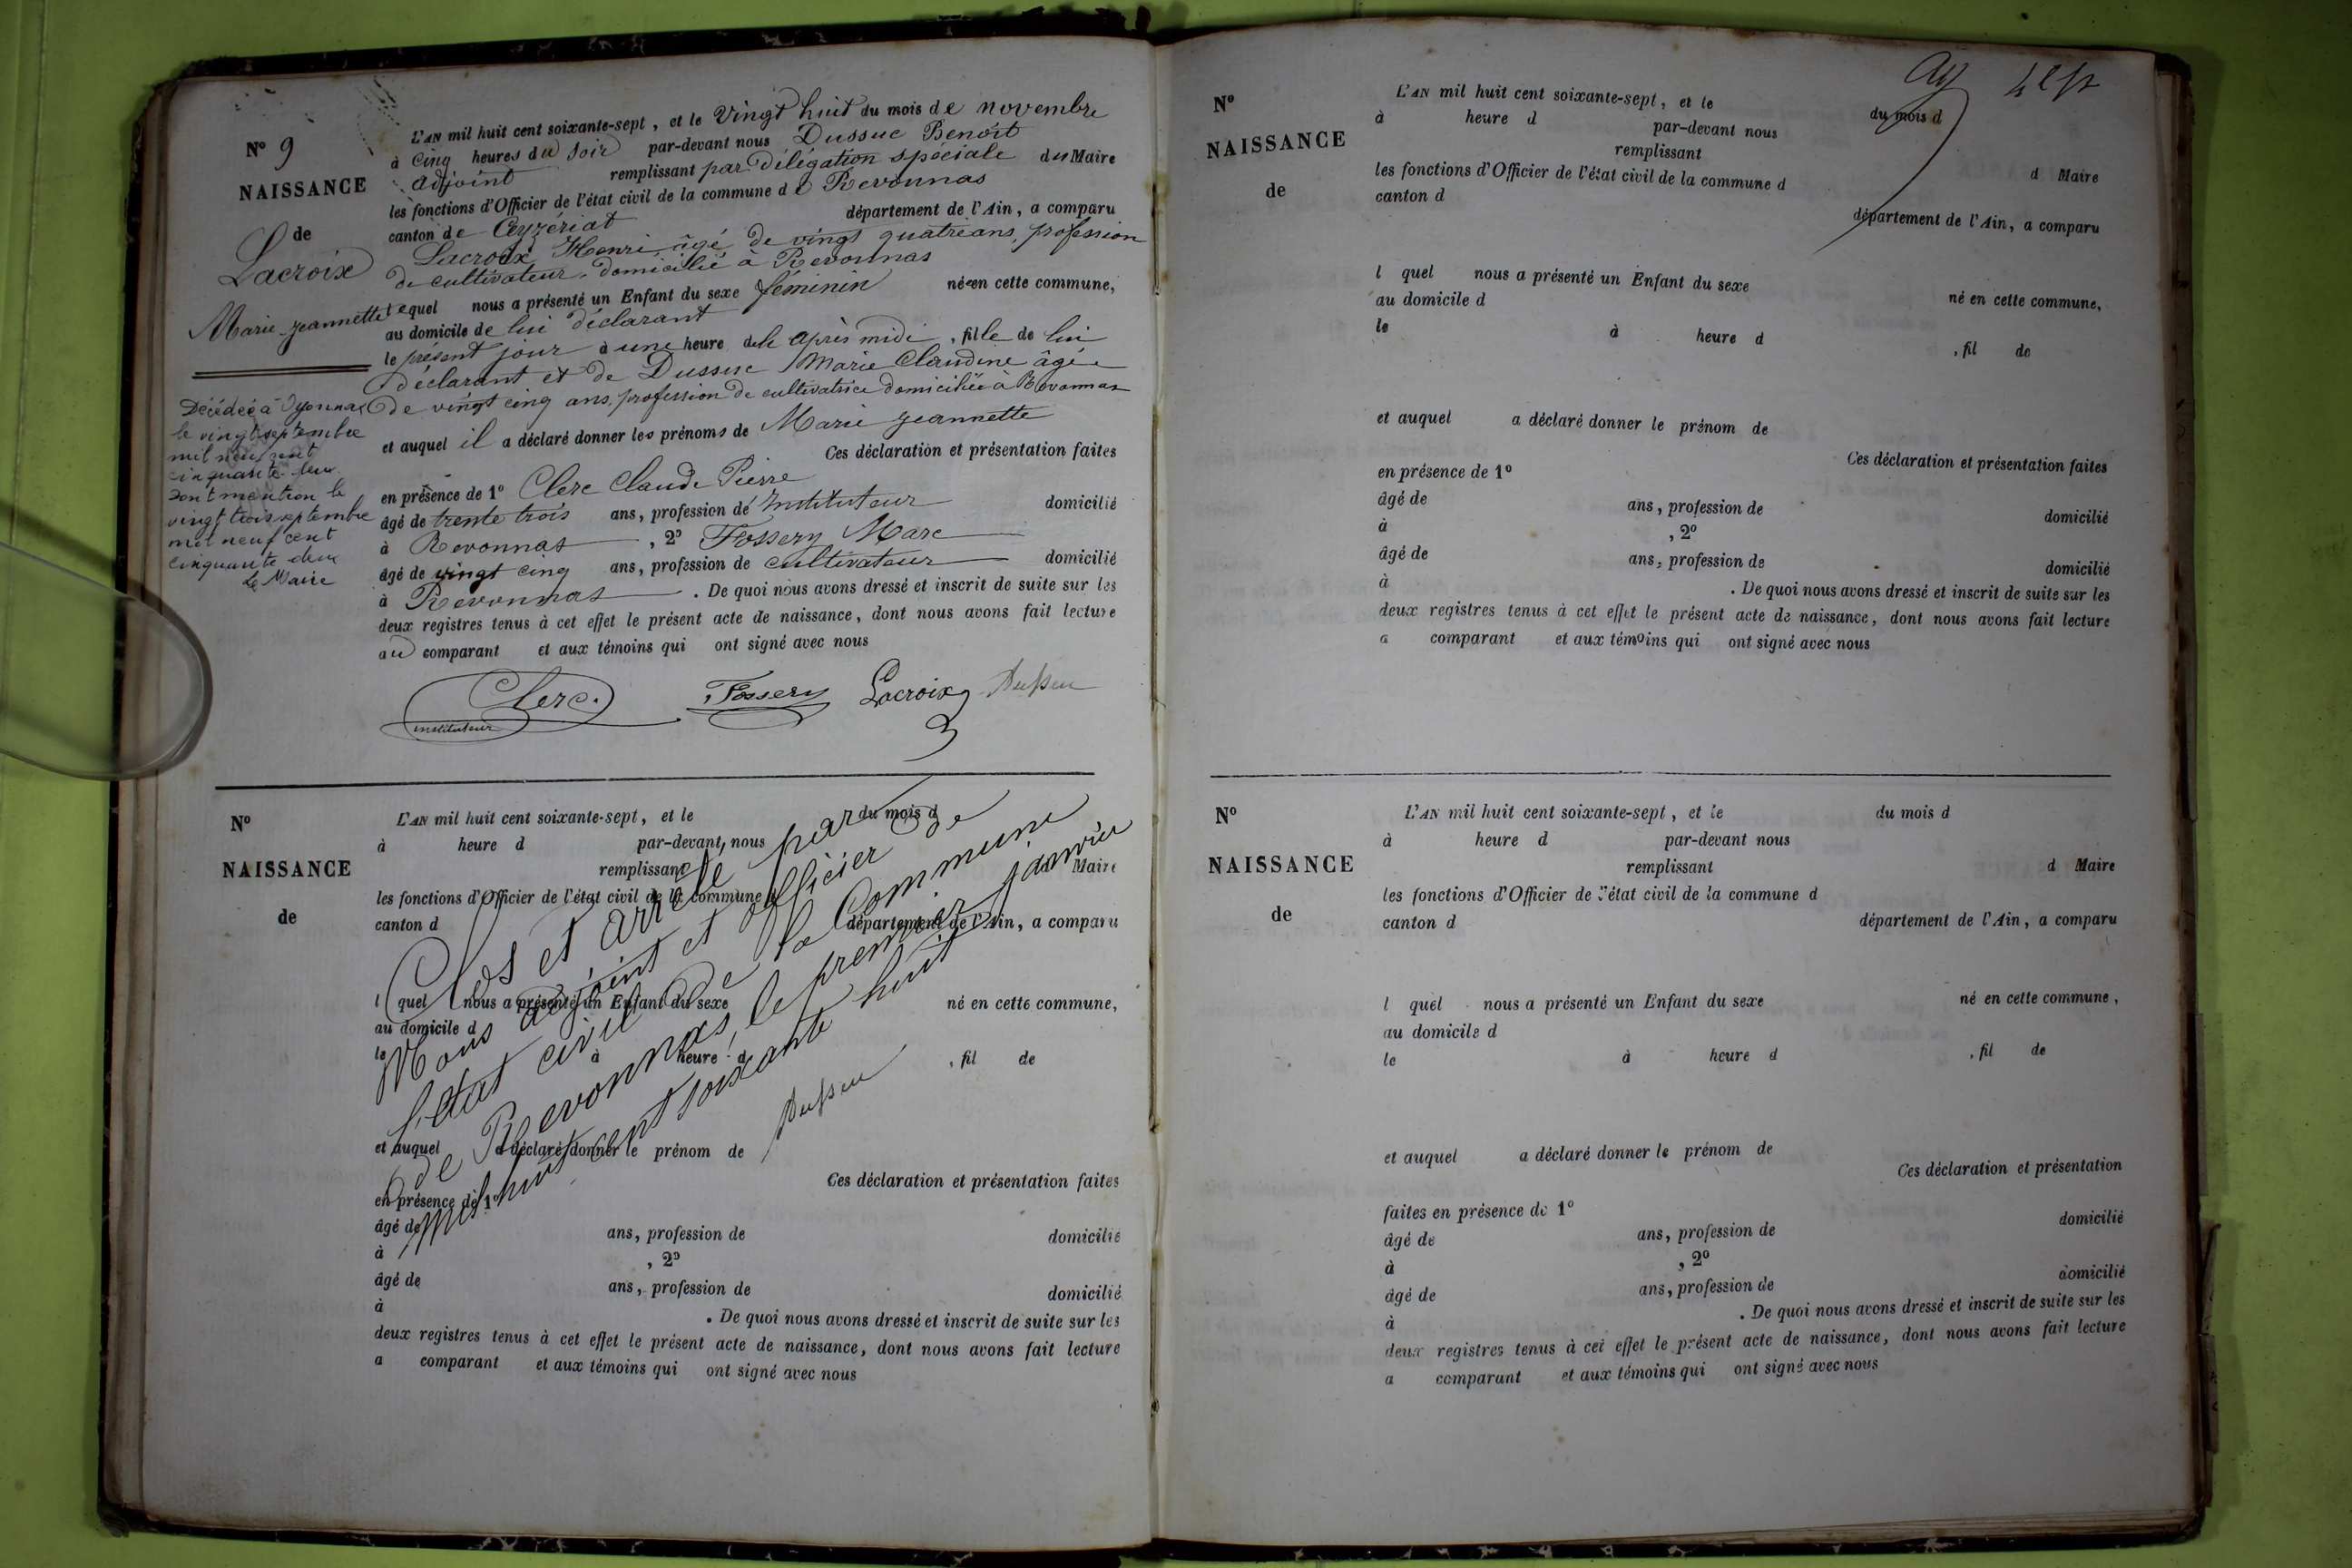 N° 9
NAISSANCE
de
Lacroix
Marie Jeannette
L'AN mil huit cent soixante-sept, et le Vingt huit du mois de novembre
à Cinq heures du soir par-devant nous Dussuc Benoît
adjoint remplissant par délégation spéciale du Maire
les fonctions d'Officier de l'état civil de la commune de Revonnas
canton de Ceyzériat département de l'Ain, a comparu
Lacroix Henri âgé de vingt quatre ans, profession
de cultivateur, domicilié à Revonnas
lequel nous a présenté un Enfant du sexe féminin née en cette commune,
au domicile de lui déclarant
le présent jour à une heure de l' après midi, fille de lui
déclarant et de Dussuc Marie Claudine âgée
de vingt cinq ans, profession de cultivatrice domiciliée à Revonnas
et auquel il a déclaré donner les prénoms de Marie Jeannette
Ces déclaration et présentation faites
en présence de 1° Clerc Claude Pierre
âgé de trente trois ans, profession de Instituteur domicilié
à Revonnas, 2° Fossery Marc
âgé de vingt cinq ans, profession de cultivateur domicilié
à Revonnas. De quoi nous avons dressé et inscrit de suite sur les
deux registres tenus à cet effet le présent acte de naissance, dont nous avons fait lecture
au comparant et aux témoins qui ont signé avec nous
Clerc. Fossery Lacroix Dussuc
instituteur
Décédée à Oyonnax
le vingt septembre
mil neuf cent
cinquante deux
Dont mention le
vingt trois septembre
mil neuf cent
cinquante deux
Le Maire
N°
NAISSANCE
de
L'AN mil huit cent soixante-sept, et le du mois d
à heure d par-devant nous
remplissant d Maire
les fonctions d'Officier de l'état civil de la commune d
canton d département de l'Ain, a comparu
l quel nous a présenté un Enfant du sexe né en cette commune,
au domicile d
le à heure d , fil de
et auquel a déclaré donner le prénom de
Ces déclaration et présentation faites
en présence de 1°
âgé de ans, profession de domicilié
à , 2°
âgé de ans, profession de domicilié
à . De quoi nous avons dressé et inscrit de suite sur les
deux registres tenus à cet effet le présent acte de naissance, dont nous avons fait lecture
a comparant et aux témoins qui ont signé avec nous
Clos et arrêté par
Nous adjoint et officier de
l'état civil de la Commune
de Revonnas, le premier janvier
mil huit cent soixante huit
Dussuc
N°
NAISSANCE
de
L'AN mil huit cent soixante-sept, et le du mois d
à heure d par-devant nous
remplissant d Maire
les fonctions d'Officier de l'état civil de la commune d
canton d département de l'Ain, a comparu
l quel nous a présenté un Enfant du sexe né en cette commune,
au domicile d
le à heure d , fil de
et auquel a déclaré donner le prénom de
Ces déclaration et présentation faites
en présence de 1°
âgé de ans, profession de domicilié
à , 2°
âgé de ans, profession de domicilié
à . De quoi nous avons dressé et inscrit de suite sur les
deux registres tenus à cet effet le présent acte de naissance, dont nous avons fait lecture
a comparant et aux témoins qui ont signé avec nous
N°
NAISSANCE
de
L'AN mil huit cent soixante-sept, et le du mois d
à heure d par-devant nous
remplissant d Maire
les fonctions d'Officier de l'état civil de la commune d
canton d département de l'Ain, a comparu
l quel nous a présenté un Enfant du sexe né en cette commune,
au domicile d
le à heure d , fil de
et auquel a déclaré donner le prénom de
Ces déclaration et présentation
faites en présence de 1°
âgé de ans, profession de domicilié
à , 2°
âgé de ans, profession de domicilié
à . De quoi nous avons dressé et inscrit de suite sur les
deux registres tenus à cet effet le présent acte de naissance, dont nous avons fait lecture
a comparant et aux témoins qui ont signé avec nous